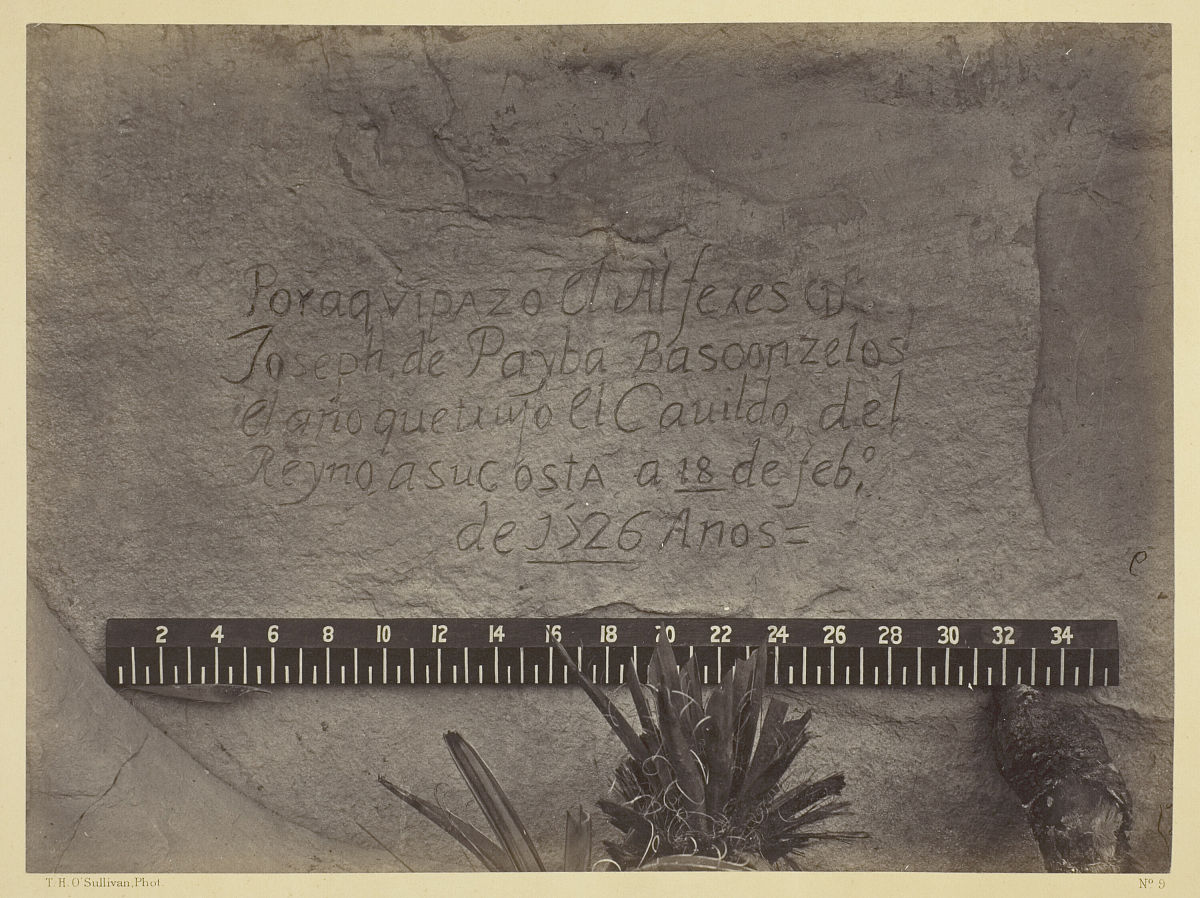 Por aqvi pAzo el Alferes Dn
Joseph, de Payba Basconzelos
el año que trujo el Cauildo, del
Reyno, a su CostA a 18 de feb,o
de 1526 Años=
2 4 6 8 10 12 14 16 18 20 22 24 26 28 30 32 34
e
T. H. O'Sullivan, Phot.
No. 9